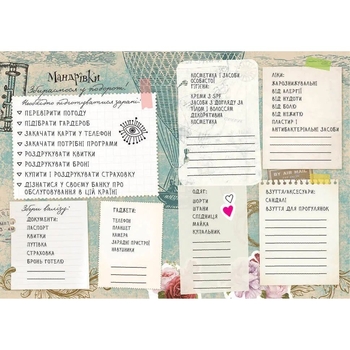 Мандрівки
Збираємося у подорож
Необхідно підготуватися заздалегідь
ПЕРЕВІРИТИ ПОГОДУ
ПІДІБРАТИ ГАРДЕРОБ
ЗАКАЧАТИ КАРТИ У ТЕЛЕФОН
ЗАКАЧАТИ ПОТРІБНІ ПРОГРАМИ
РОЗДРУКУВАТИ КВИТКИ
РОЗДРУКУВАТИ БРОНІ
КУПИТИ І РОЗДРУКУВАТИ СТРАХОВКУ
ДІЗНАТИСЯ У СВОЄМУ БАНКУ ПРО
ОБСЛУГОВУВАННЯ В ЦІЙ КРАЇНІ
ДОКУМЕНТИ:
ПАСПОРТ
КВИТКИ
ПУТІВКА
СТРАХОВКА
БРОНЬ ГОТЕЛЮ
ГАДЖЕТИ:
ТЕЛЕФОН
ПЛАНШЕТ
КАМЕРА
ЗАРЯДНІ ПРИСТРОЇ
НАВУШНИКИ
КОСМЕТИКА І ЗАСОБИ
ОСОБИСТОЇ
ГІГІЄНИ:
КРЕМИ З SPF
ЗАСОБИ З ДОГЛЯДУ ЗА
ТІЛОМ І ВОЛОССЯМ
ДЕКОРАТИВНА
КОСМЕТИКА
ОДЯГ:
ШОРТИ
ШТАНИ
СПІДНИЦЯ
МАЙКА
КУПАЛЬНИК
ЛІКИ:
ЖАРОЗНИЖУВАЛЬНІ
ВІД АЛЕРГІЇ
ВІД НУДОТИ
ВІД БОЛЮ
ВІД НЕЖИТЮ
ПЛАСТИР І
АНТИБАКТЕРІАЛЬНІ ЗАСОБИ
BY AIR MAIL
ВЗУТТЯ/АКСЕСУАРИ:
САНДАЛІ
ВЗУТТЯ ДЛЯ ПРОГУЛЯНОК